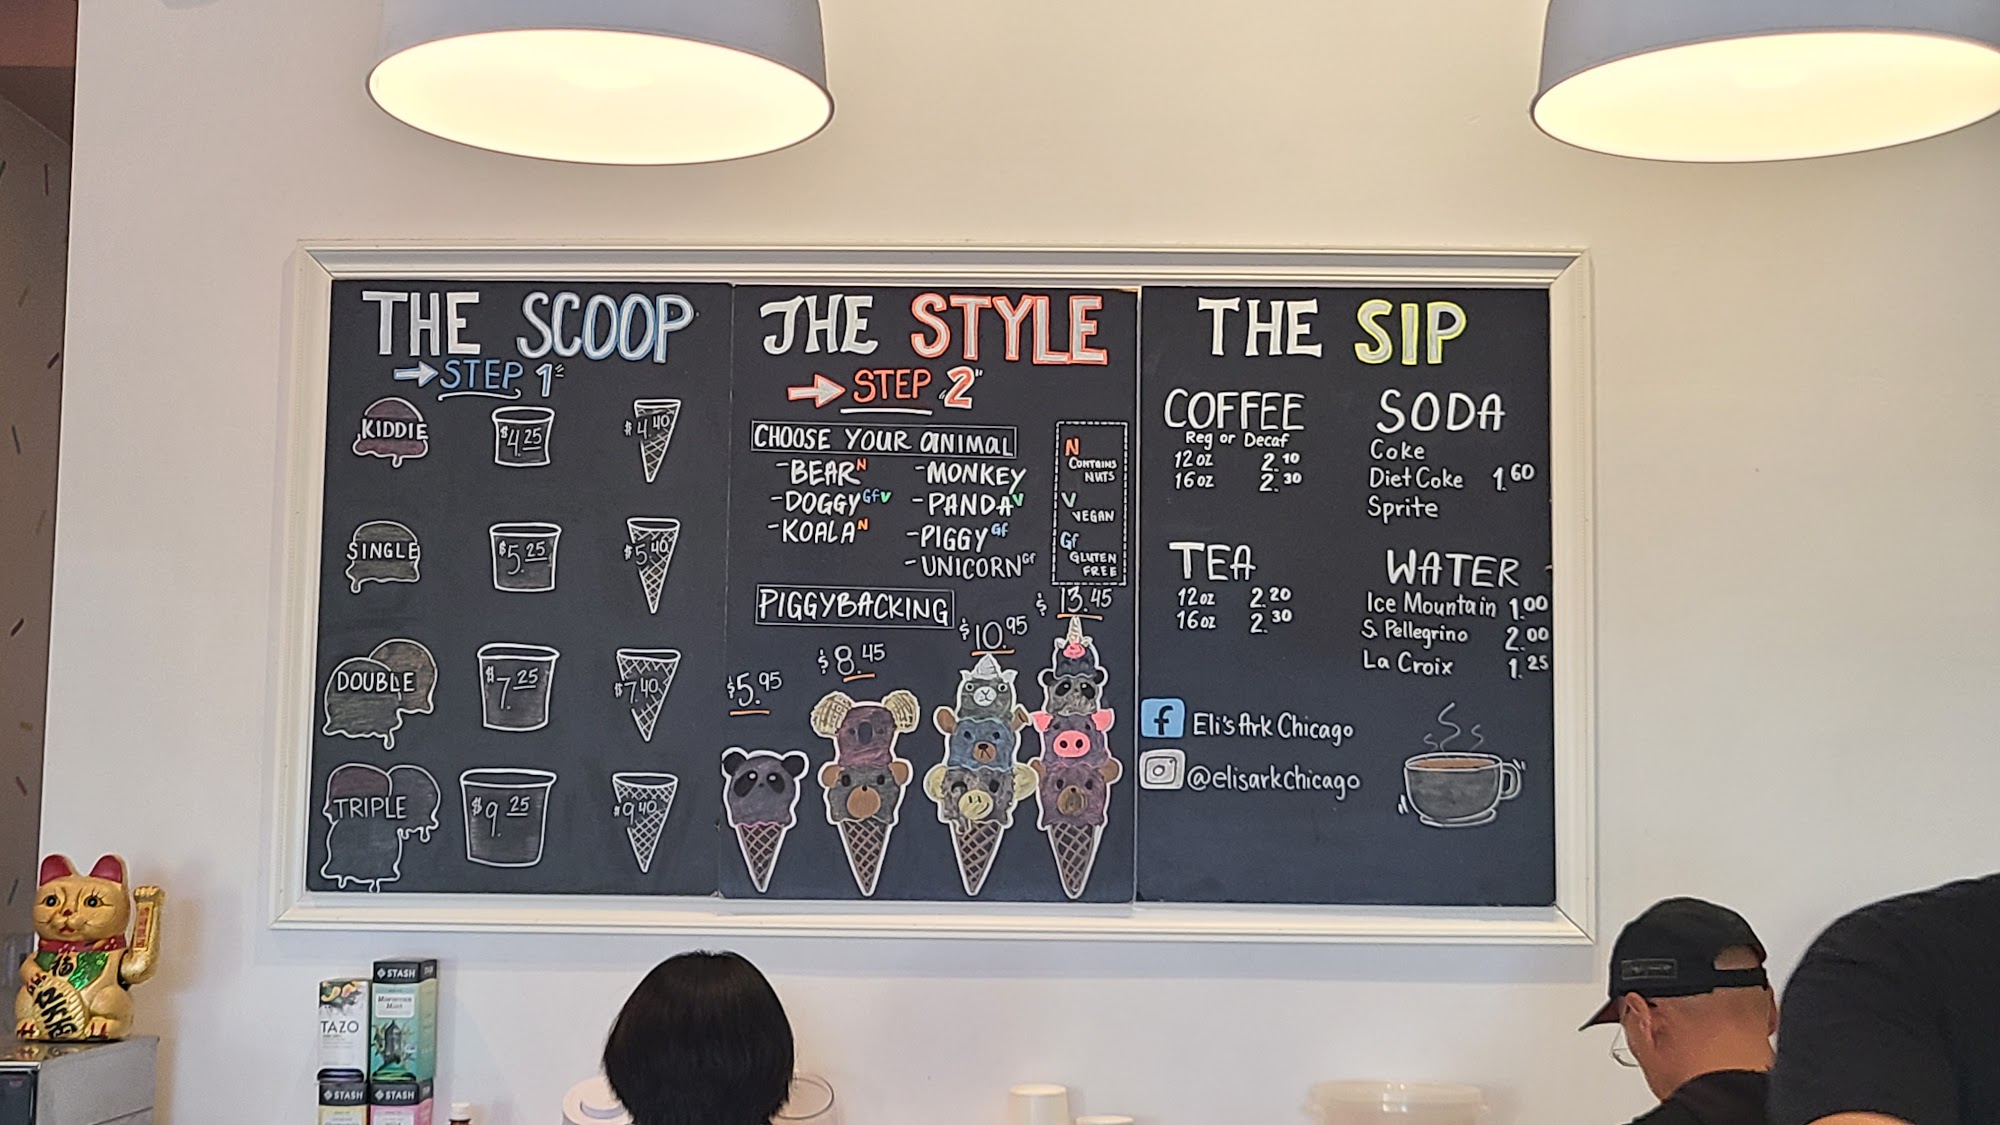 THE SCOOP
STEP 1
KIDDIE $4.25 $4.40
SINGLE $5.25 $5.40
DOUBLE $7.25 $7.40
TRIPLE $9.25 $9.40
THE STYLE
STEP 2
CHOOSE YOUR ANIMAL
-BEAR N
-DOGGY Gf V
-KOALA N
-MONKEY
-PANDA V
-PIGGY Gf
-UNICORN Gf
N
CONTAINS
NUTS
V
VEGAN
Gf
GLUTEN
FREE
PIGGYBACKING
$5.95
$8.45
$10.95
$13.45
THE SIP
COFFEE
Reg or Decaf
12oz 2.10
16oz 2.30
TEA
12oz 2.20
16oz 2.30
SODA
Coke
Diet Coke 1.60
Sprite
WATER
Ice Mountain 1.00
S. Pellegrino 2.00
La Croix 1.25
f Eli's Ark Chicago
@elisarkchicago
福
TAZO
STASH
STASH
STASH